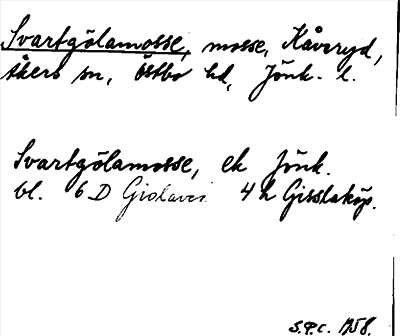 Svartgölamosse, mosse, Kåveryd,
Åkers sn, Östbo hd, Jönk. l.
Svartgölamosse, ek Jönk.
bl. 6 D Gislaved 4 h Gisslaköp.
S.P.C. 1958.